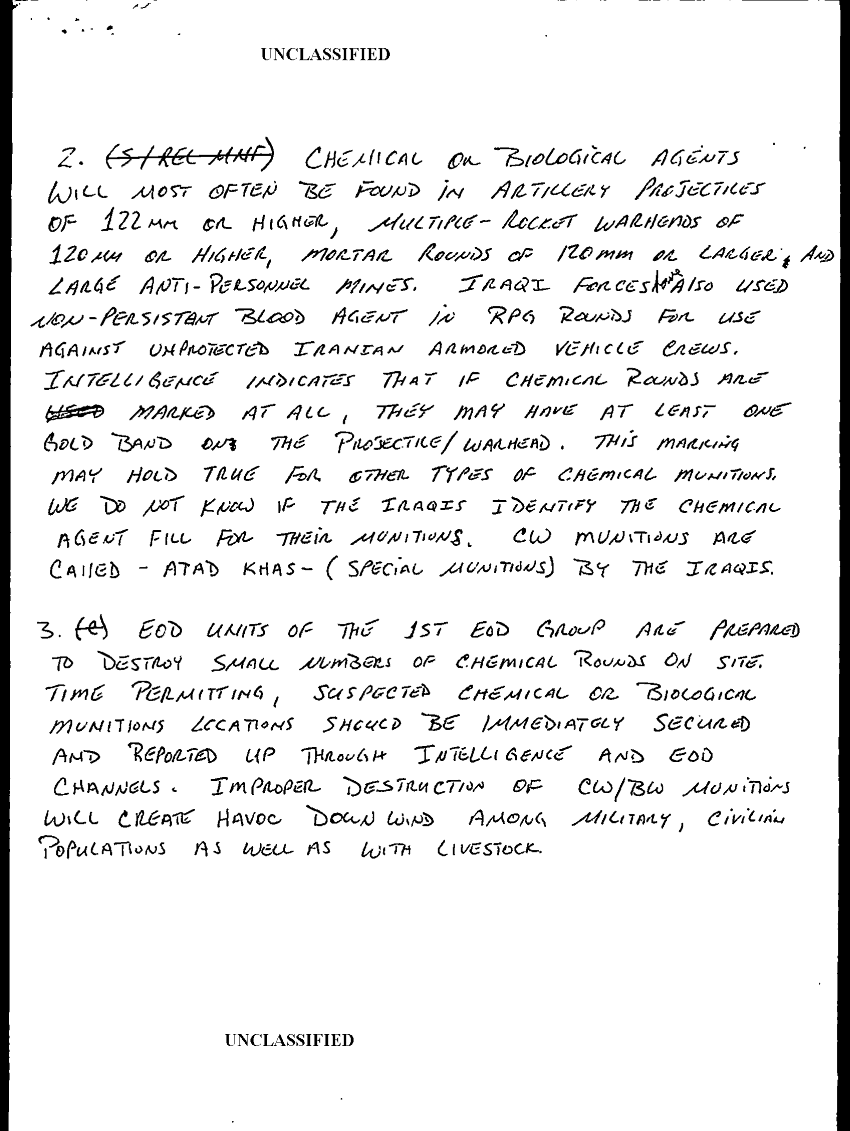 UNCLASSIFIED
2. (S/REL MNF) CHEMICAL OR BIOLOGICAL AGENTS
WILL MOST OFTEN BE FOUND IN ARTILLERY PROJECTILES
OF 122MM OR HIGHER, MULTIPLE-ROCKET WARHEADS OF
120MM OR HIGHER, MORTAR ROUNDS OF 120MM OR LARGER, AND
LARGE ANTI-PERSONNEL MINES. IRAQI FORCES HAVE ALSO USED
NON-PERSISTANT BLOOD AGENT IN RPG ROUNDS FOR USE
AGAINST UNPROTECTED IRANIAN ARMORED VEHICLE CREWS.
INTELLIGENCE INDICATES THAT IF CHEMICAL ROUNDS ARE
USED MARKED AT ALL, THEY MAY HAVE AT LEAST ONE
GOLD BAND ON THE PROJECTILE/WARHEAD. THIS MARKING
MAY HOLD TRUE FOR OTHER TYPES OF CHEMICAL MUNITIONS.
WE DO NOT KNOW IF THE IRAQIS IDENTIFY THE CHEMICAL
AGENT FILL FOR THEIR MUNITIONS. CW MUNITIONS ARE
CALLED - ATAD KHAS - (SPECIAL MUNITIONS) BY THE IRAQIS.
3. (C) EOD UNITS OF THE 1ST EOD GROUP ARE PREPARED
TO DESTROY SMALL NUMBERS OF CHEMICAL ROUNDS ON SITE.
TIME PERMITTING, SUSPECTED CHEMICAL OR BIOLOGICAL
MUNITIONS LOCATIONS SHOULD BE IMMEDIATELY SECURED
AND REPORTED UP THROUGH INTELLIGENCE AND EOD
CHANNELS. IMPROPER DESTRUCTION OF CW/BW MUNITIONS
WILL CREATE HAVOC DOWN WIND AMONG MILITARY, CIVILIAN
POPULATIONS AS WELL AS WITH LIVESTOCK.
UNCLASSIFIED